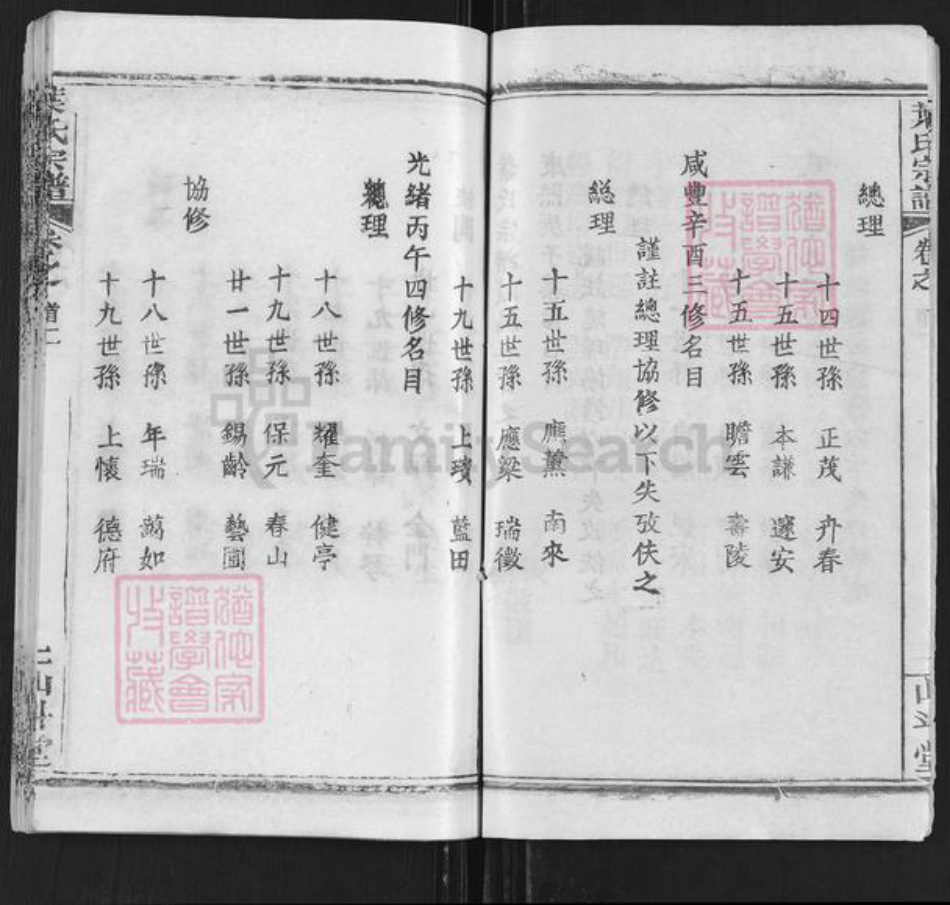 葉氏宗譜 卷之
總理
十四世孫 正茂 升春
十五世孫 本謙 遜安
十五世孫 瞻雲 壽陵
咸豐辛酉三修名目
謹註總理協修以下失攷佚之
総理
十五世孫 應薰 南來
十五世孫 應梁 瑞徵
十九世孫 上璜 藍田
光緒丙午四修名目
總理
十八世孫 耀奎 健亭
十九世孫 保元 春山
廿一世孫 錫齡 藝圃
協修
十八世孫 年瑞 藹如
十九世孫 上懷 德府
葉氏宗譜 卷之首
山斗堂
猶他家譜學會收藏
FamilySearch